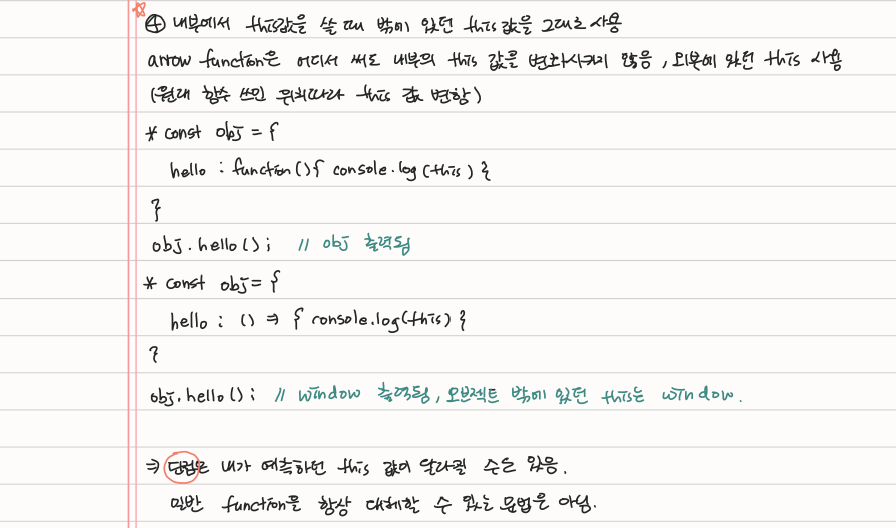 ④ 내부에서 this값을 쓸 때 밖에 있던 this 값을 그대로 사용
arrow function은 어디서 써도 내부의 this 값을 변화시키지 않음, 외부에 있던 this 사용
(원래 함수 쓰인 위치따라 this 값 변함)
* const obj = {
hello : function(){ console.log(this) }
}
obj.hello(); // obj 출력됨
* const obj = {
hello : () => { console.log(this) }
}
obj.hello(); // window 출력됨, 오브젝트 밖에 있던 this는 window.
⇒ 단점은 내가 예측하던 this 값이 달라질 수는 있음.
일반 function을 항상 대체할 수 있는 문법은 아님.